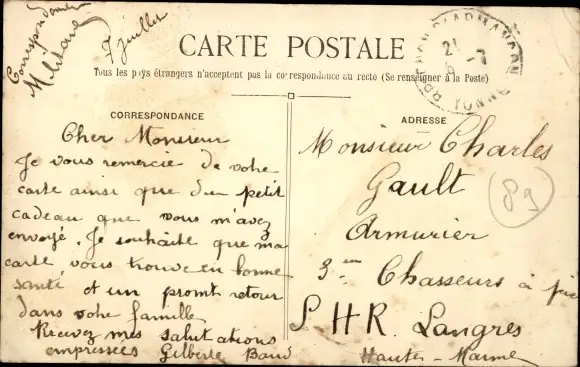 Correspondance
Militaire
7 juillet
CARTE POSTALE
Tous les pays étrangers n'acceptent pas la correspondance au recto (Se renseigner à la Poste)
21 -7
YONNE
CORRESPONDANCE
Cher Monsieur
Je vous remercie de votre
carte ainsi que du petit
cadeau que vous m'avez
envoyé. Je souhaite que ma
carte vous trouve en bonne
santé et un promt retour
dans votre famille
Recevez mes salutations
empressées Gilberte
ADRESSE
Monsieur Charles
Gault
89
Armurier
3em Chasseurs à pied
S. H R. Langres
Haute-Marne